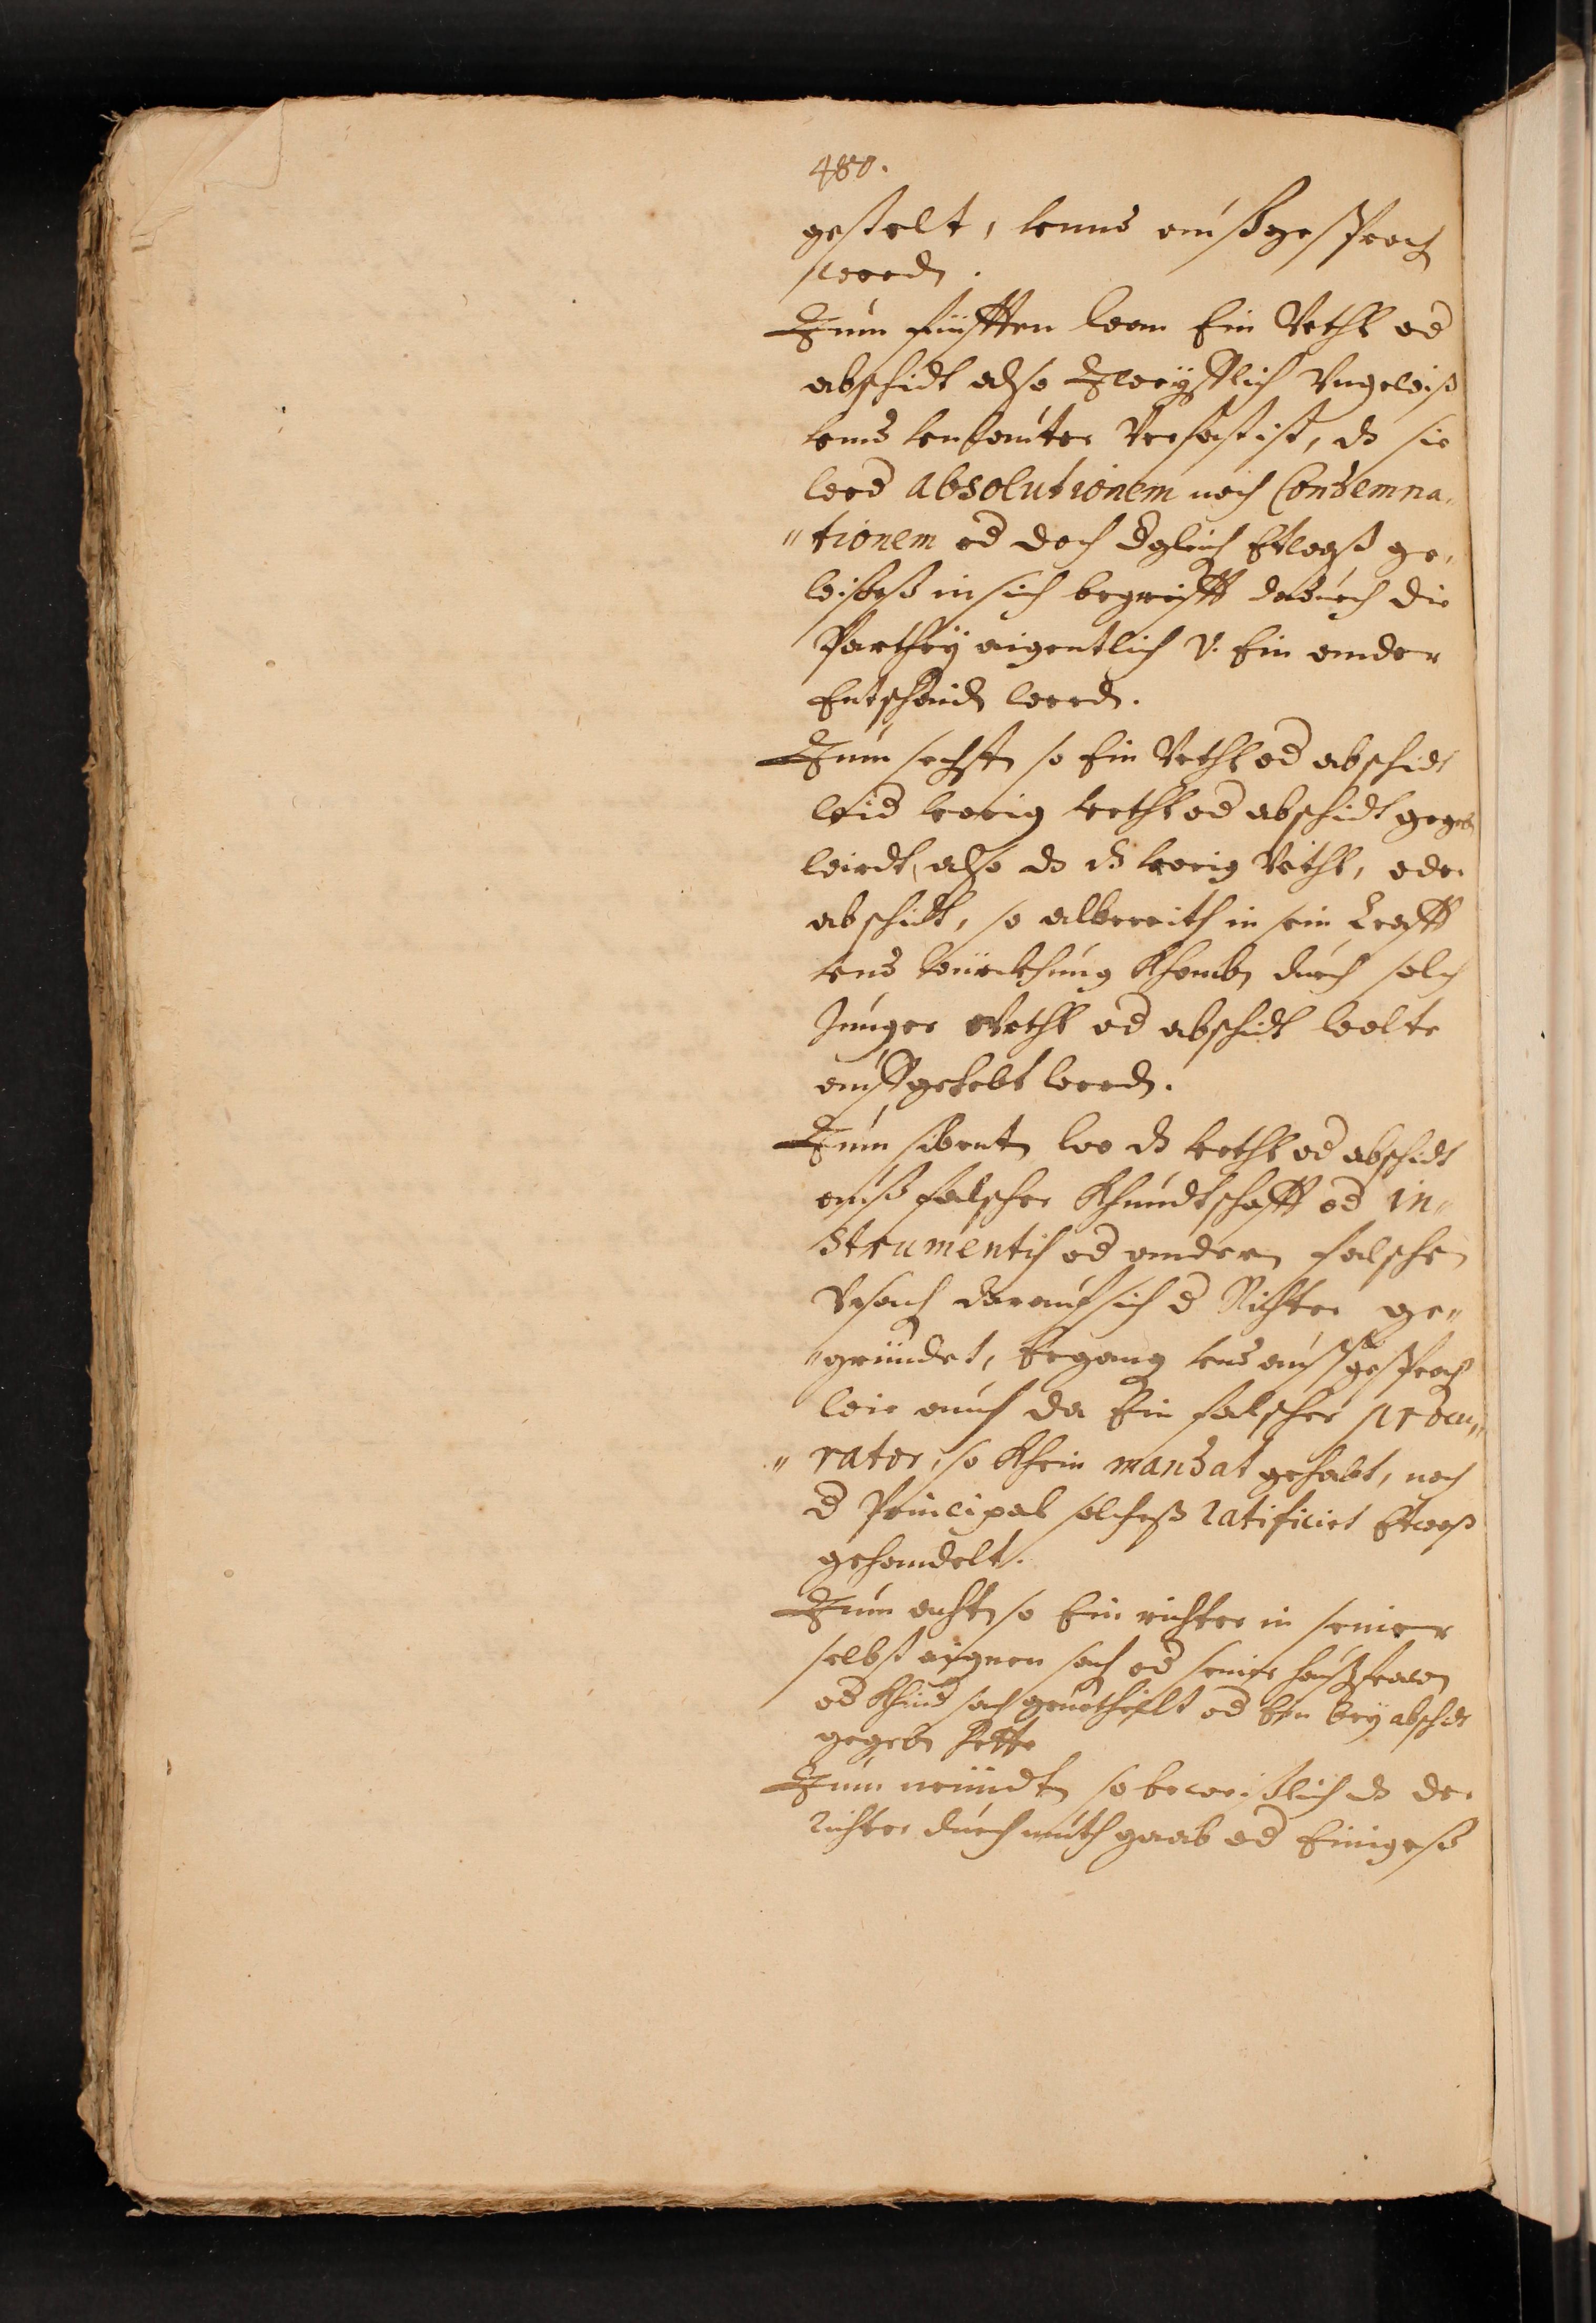 480.
gestelt, vnnd außgesproch
werdn.
Zum fünfften wan Ein Vrthl od
abschidt also Zweyfflich Vngewiß
vnnd vnlauter Verfast ist, dz sie
wed absolutionem noch Condemna„
„tionem od doch dgleich Etwaß ge„
wisses in sich begreifft dadurch die
Parthey aigentlich v. Ein ander
Entscheidn werdn.
Zum sechstn so Ein Vrthl od abschidt
wid vorig vrthl od abschidt gegebn
wirdt, also dz ds vorig Vrthl, oder
abschidt, so albereith in sein Krafft
vnd würckhung Khombn durch solch
Junger Vrthl od abschidt wolte
auffgehebt werdn.
Zum sibentn wo ds vrthl od abschidt
auß falscher Khundtschafft od in„
strumentis od andern falschen
Vrsach darauf sich d Richter ge„
„gründet, Ergang vnd außgesproch
wie auch da Ein falscher procu„
„rator, so Khein mandat gehabt, noch
d Principal solcheß ratificiert Etwaß
gehandelt.
Zum achtn so Ein richter in seiner
selbst aignen sach od seiner haußfrawen
od Khind sach geurtheilt od bey abschidt
gegebn hette
Zum neündtn so beweißlich ds der
richter durch mieth gaab od Einigeß